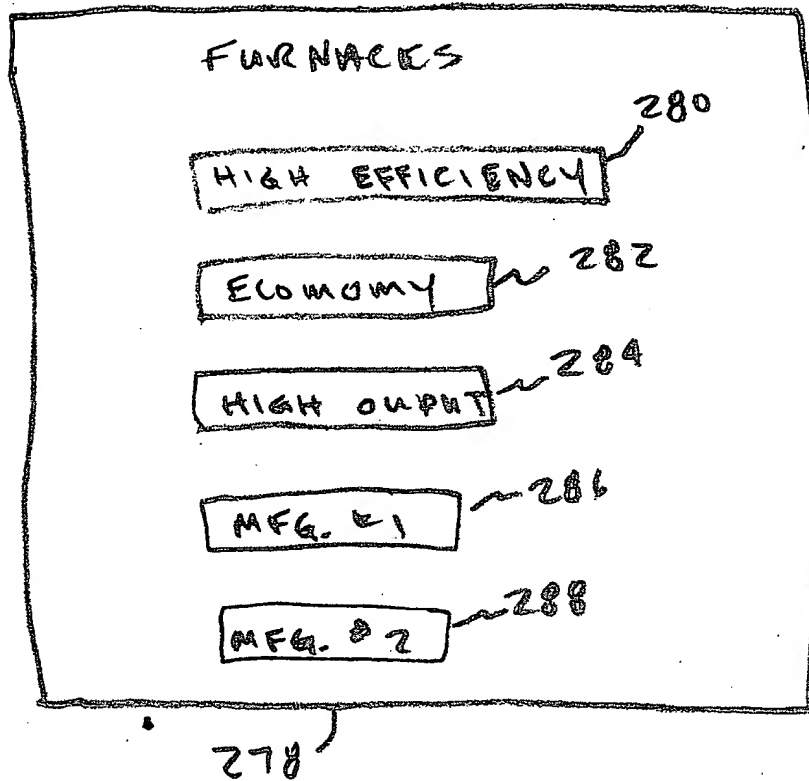 FURNACES
280
HIGH EFFICIENCY
282
ECONOMY
284
HIGH OUPUT
286
MFG. #1
288
MFG. #2
278